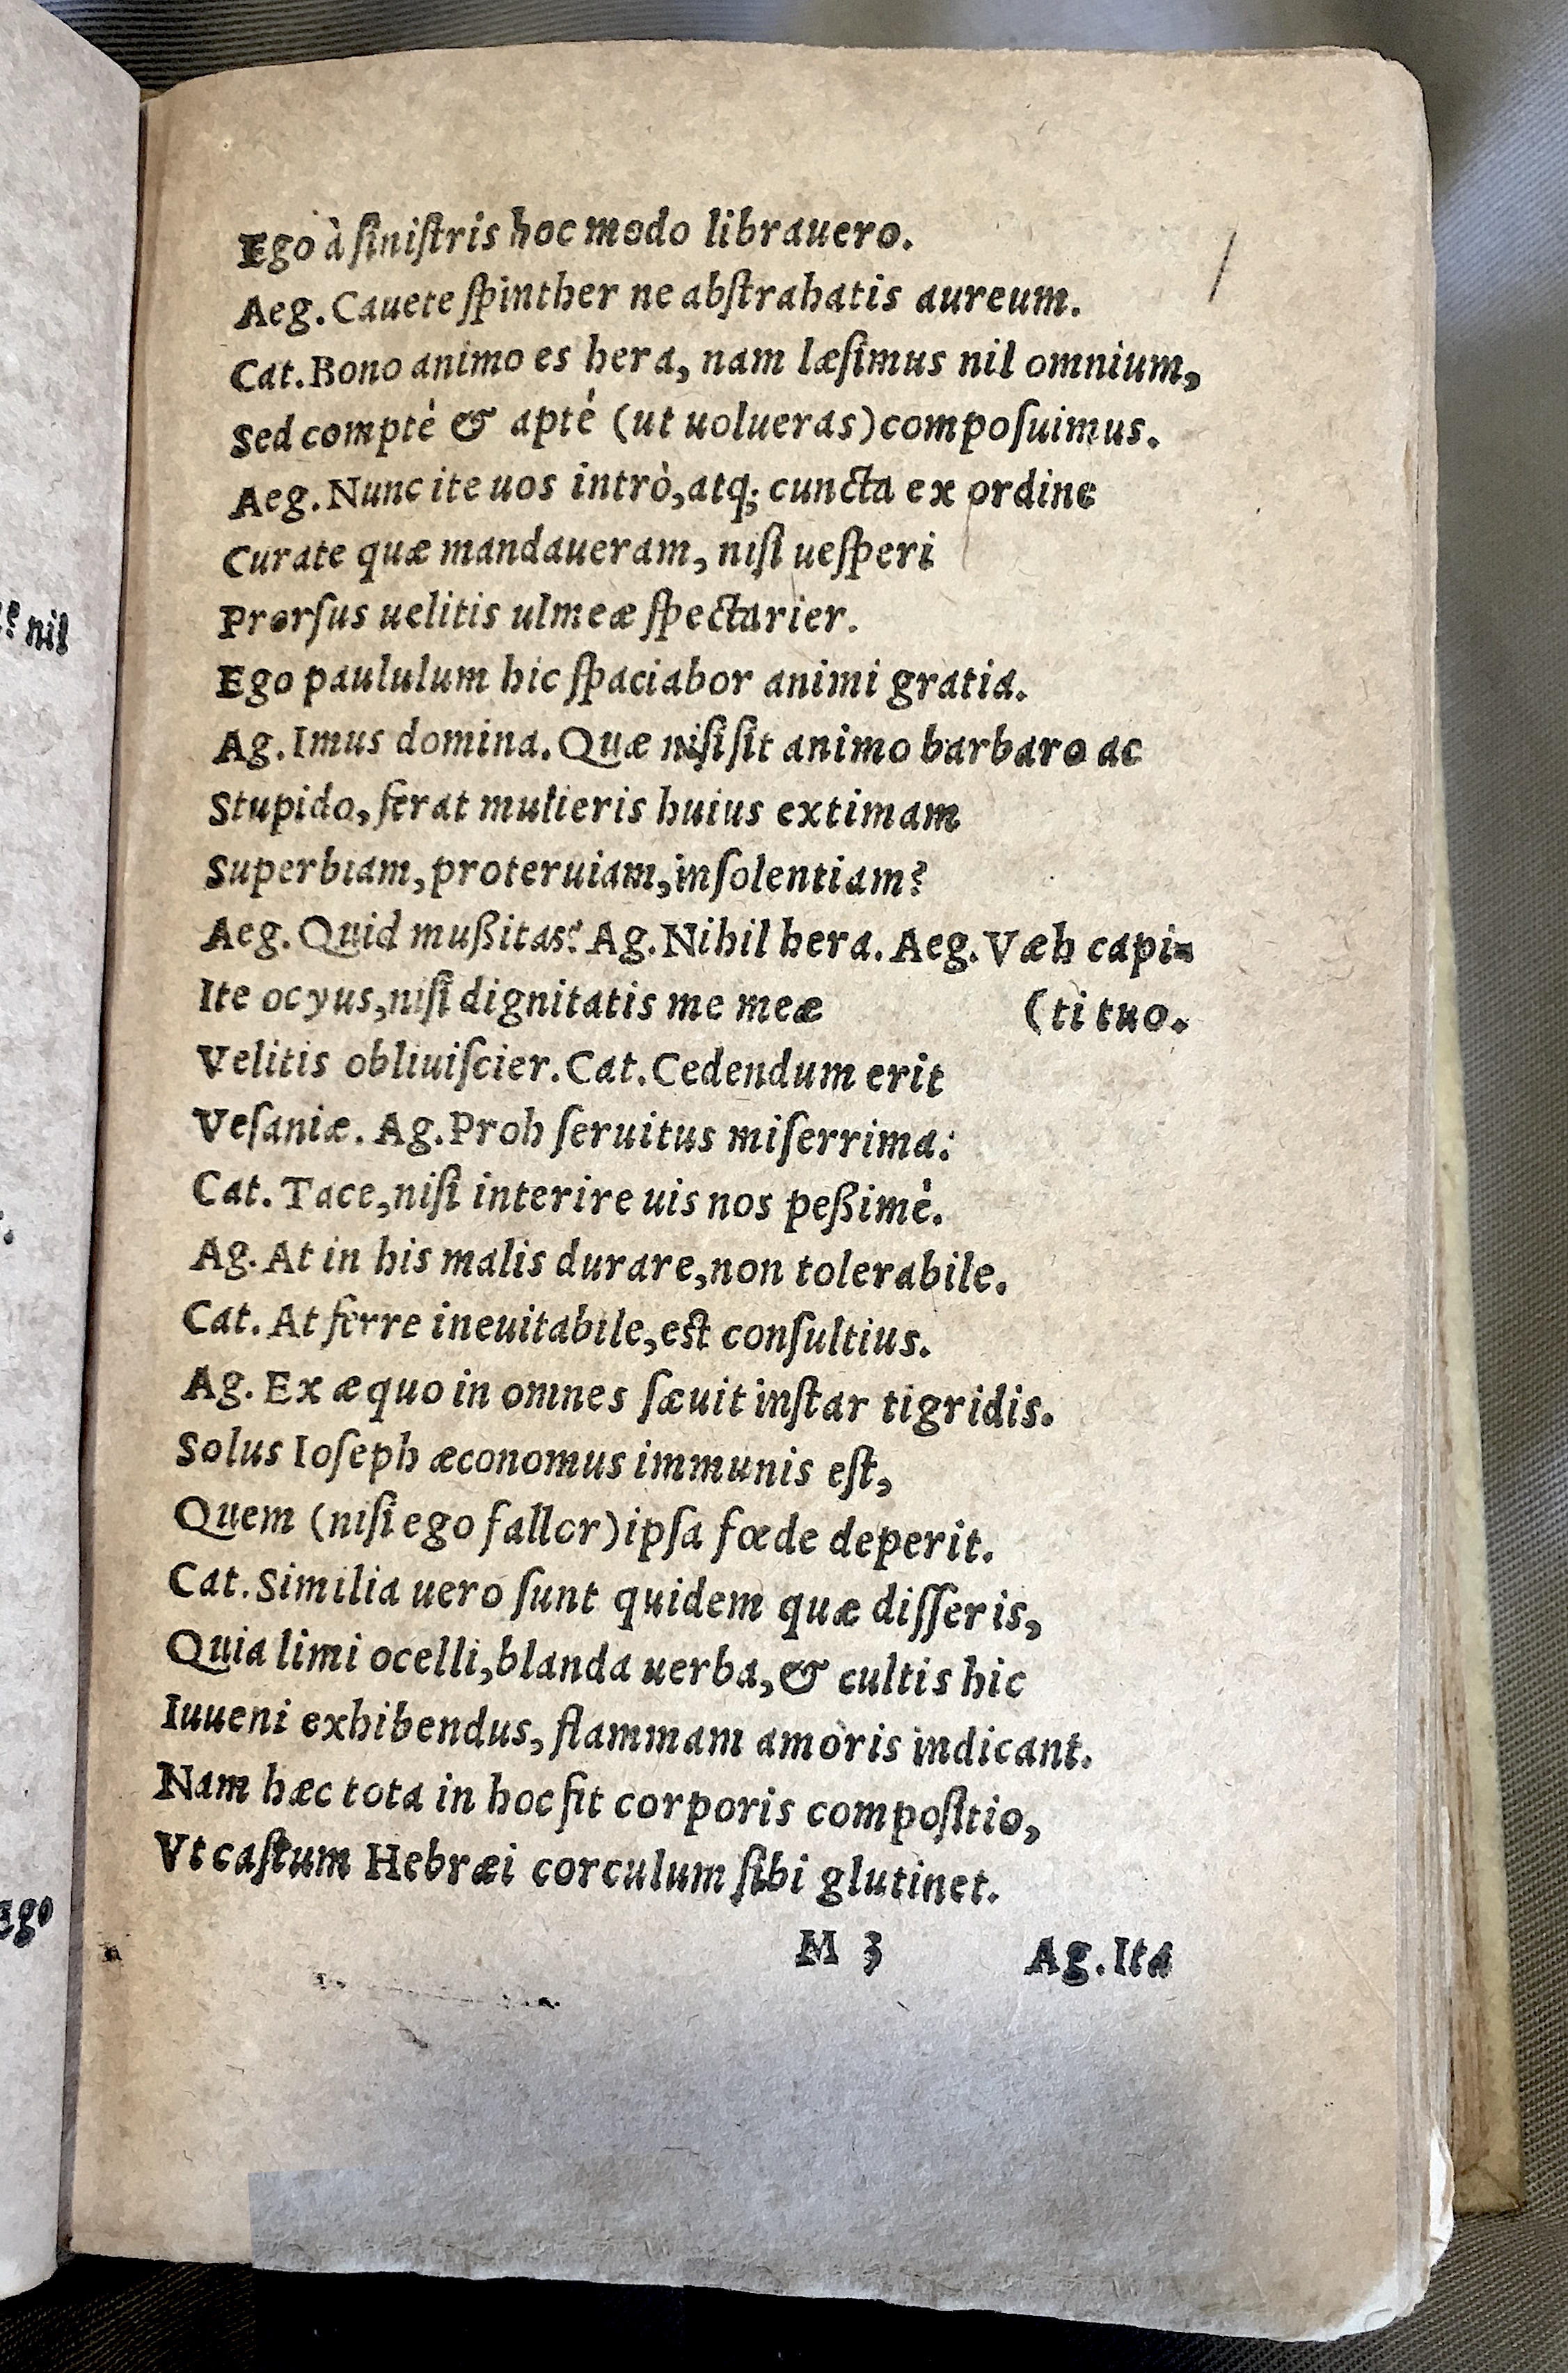 Ego à ſiniſtris hoc modo librauero.
Aeg. Cauete ſpinther ne abſtrahatis aureum.
Cat. Bono animo es hera, nam læſimus nil omnium,
Sed comptè & aptè (ut uolueras) compoſuimus.
Aeg. Nunc ite uos intrò, atq; cuncta ex ordine
Curate quæ mandaueram, niſi ueſperi
Prorſus uelitis ulmeæ ſpectarier.
Ego paululum hic ſpaciabor animi gratia.
Ag. Imus domina. Quæ niſi ſit animo barbaro ac
Stupido, ferat mulieris huius extimam
Superbiam, proteruiam, inſolentiam?
Aeg. Quid mußitas? Ag. Nihil hera. Aeg. Væh capi=
Ite ocyus, niſi dignitatis me meæ (ti tuo.
Velitis obliuiſcier. Cat. Cedendum erit
Veſaniæ. Ag. Proh ſeruitus miſerrima:
Cat. Tace, niſi interire uis nos peßimè.
Ag. At in his malis durare, non tolerabile.
Cat. At ferre ineuitabile, eſt conſultius.
Ag. Ex æquo in omnes ſæuit inſtar tigridis.
Solus Ioſeph æconomus immunis eſt,
Quem (niſi ego fallor) ipſa fœde deperit.
Cat. Similia uero ſunt quidem quæ diſſeris,
Quia limi ocelli, blanda uerba, & cultis hic
Iuueni exhibendus, flammam amoris indicant.
Nam hæc tota in hoc fit corporis compoſitio,
Vt caſtum Hebræi corculum ſibi glutinet.
M 3 Ag. Ita
nil